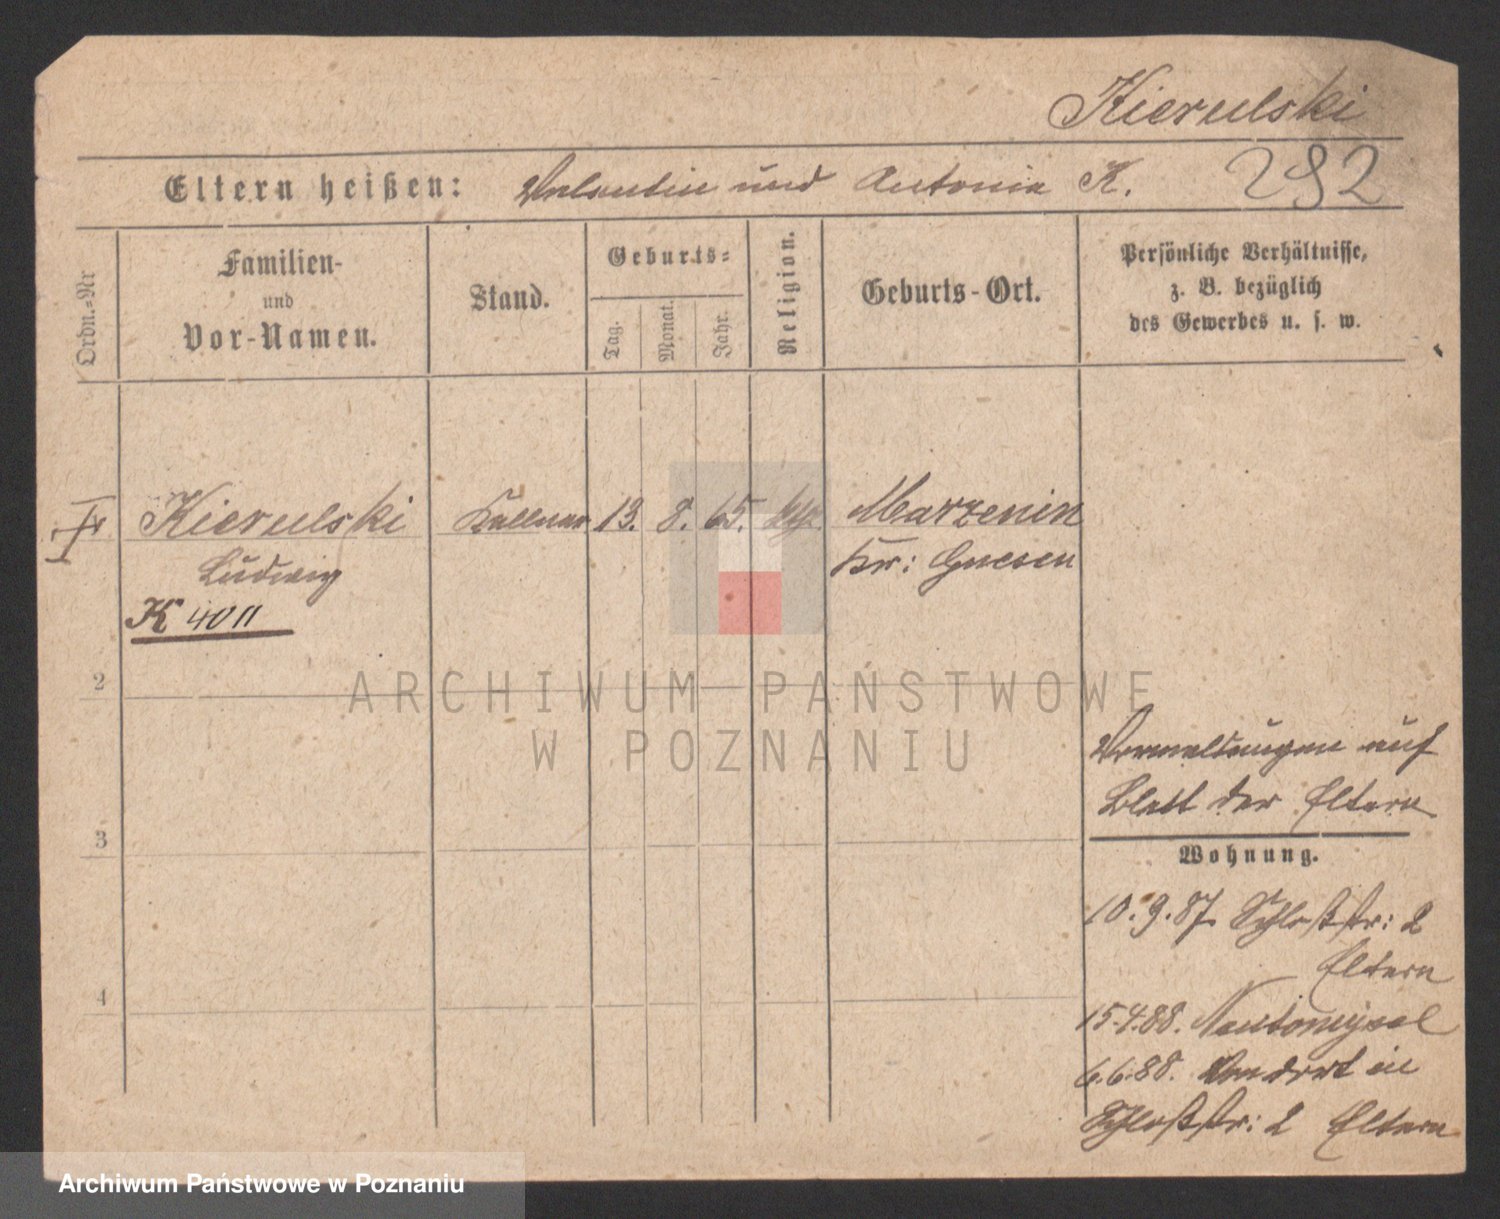 Kierulski
Eltern heißen: Valentin und Antonie K. 292
Ordn.-Nr
Familien-
und
Vor-Namen.
Stand.
Geburts-
Tag.
Monat.
Jahr.
Religion.
Geburts-Ort.
Persönliche Verhältnisse,
z. B. bezüglich
des Gewerbes u. s. w.
Kierulski Kellner 13. 8. 65. kth. Marzenin
Ludwig Kr: Gnesen
K 4011
2
ARCHIWUM PAŃSTWOWE
W POZNANIU
Vermeldungen auf
Blatt der Eltern
3
Wohnung.
10.9.87 Schloßstr: 2
Eltern
4
15.4.88. Neutomysel
6.6.88. von dort in
Schloßstr: 2 Eltern
Archiwum Państwowe w Poznaniu